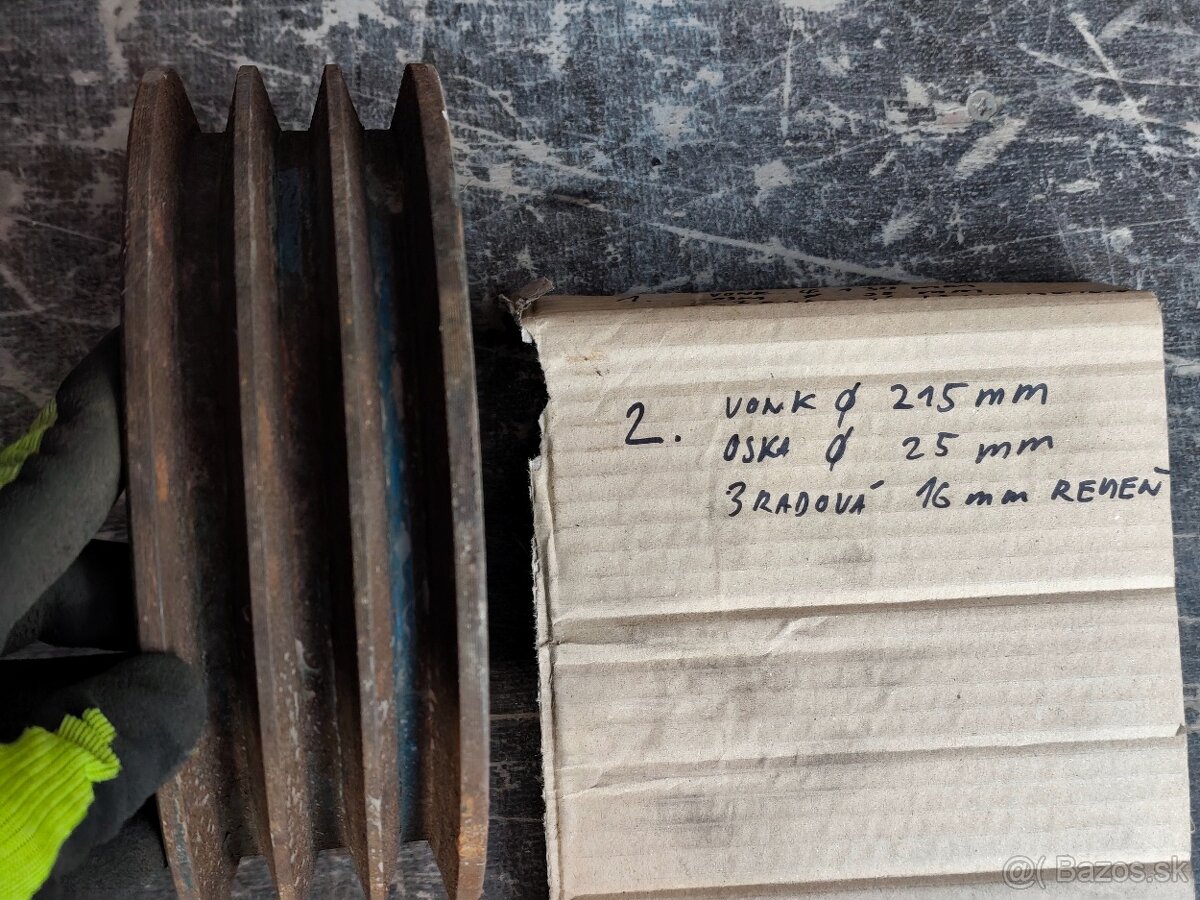 2. VONK Ø 215 mm
OSKA Ø 25 mm
3 RADOVÁ 16 mm REMEŇ
@( Bazos.sk